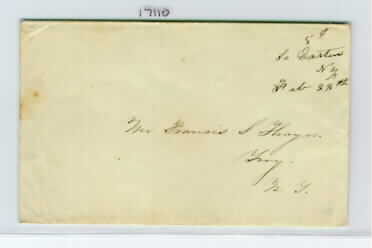 17110
So Easton
N Y
Feb 28th
Mr Francis S Thayer
Troy.
N Y.